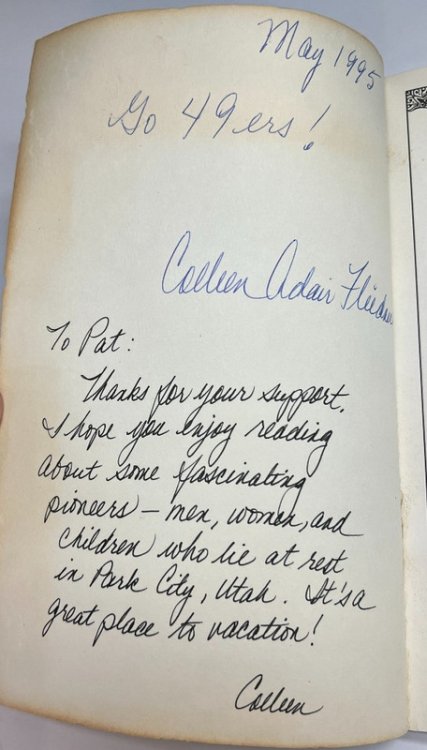 May 1995
Go 49ers!
Colleen Adair Fliedner
To Pat:
Thanks for your support.
I hope you enjoy reading
about some fascinating
pioneers – men, women, and
children who lie at rest
in Park City, Utah. It's a
great place to vacation!
Colleen